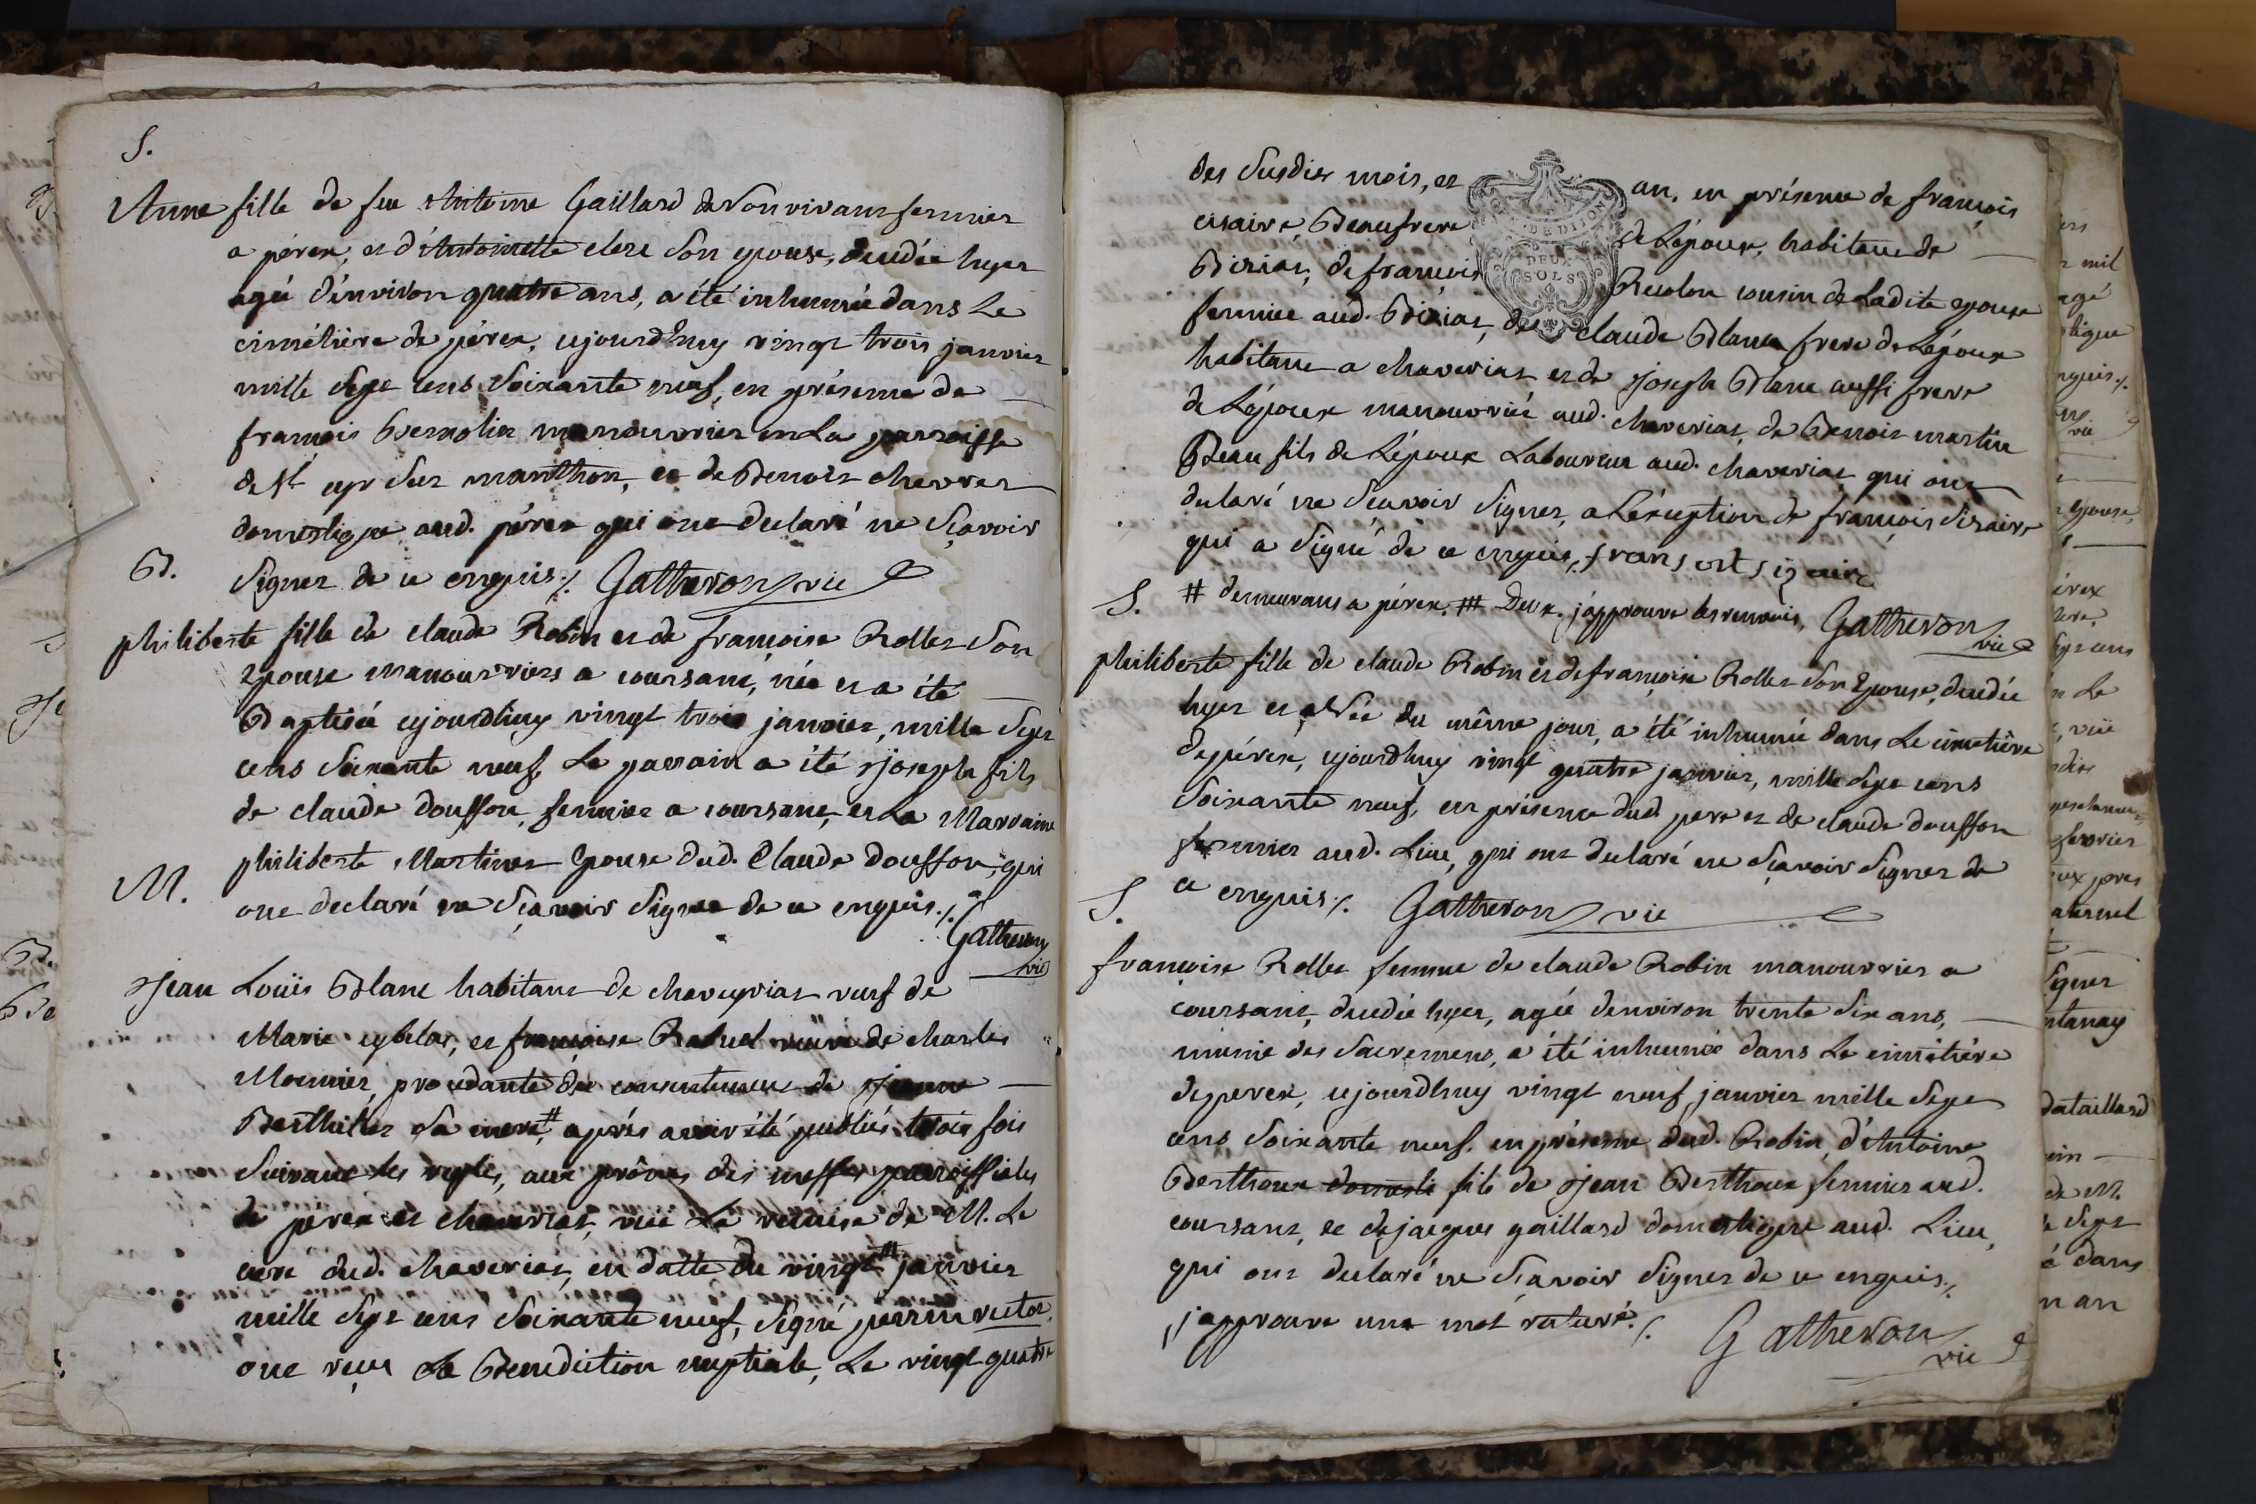 S.
Anne fille de feu Antoine Gaillard de son vivant fermier
a pérex, et d'Antoinette clere son epouse, decedée hyer
agée d'environ quatre ans, a été inhumée dans Le
cimétière de pérex, ajourdhuy vingt trois janvier
mille sept cens soixante neuf, en présence de
francois Bernolin manouvrier en La parroisse
de St cyr sur manthon, et de Benoit chevret
domestique aud. pérex qui ont declaré ne sçavoir
B. signer de ce enquis ./. Gatheron vic
philiberte fille de claude Robin et de francoise Rollet son
epouse manouvriers a coursant, née et a été
Baptisée ajourdhuy vingt trois janvier, mille sept
cens soixante neuf, Le parrain a été joseph fils
de claude douffon, fermier a coursant, et La Marraine
philiberte Martinet epouse dud. Claude douffon, qui
M. ont declaré ne sçavoir signer de ce enquis ./. Gatheron
vic
Jean Loüis Blanc habitant de chaveyriat veuf de
Marie, et francoise Rabuel veuve de charles
Monnier, procedante du consentement de jeanne
Berthillet sa mere #, aprés avoir été publiés trois fois
suivant les regles, aux prônes des messes paroissiales
de perex et chaveriat, vüe La remise de M. Le
curé dud. chaveriat, en datte du vingt ## janvier
mille sept cens soixante neuf, signé perrin rector,
ont reçu La Benediction nuptiale, Le vingt quatre
des susdits mois, et an, en présence de françois
cisaire Beaufrere de Lépoux, habitant de
Biziat, de francois Recolon cousin de Ladite epouse
fermier aud. Biziat, de claude Blanc frere de Lépoux
habitant a chaveriat et de joseph Blanc aussi frere
de Lépoux manouvrier aud. chaveriat, de Benoit martin
Beau fils de Lépoux Laboureur aud. chaveriat qui ont
declaré ne scavoir signer, a Léxception de françois sizaire
qui a signé de ce enquis,
S. # demeurant a pérex. ## Deux. j'approuve les renvois, Gatheron
vic
philiberte fille de claude Robin et de françoise Rollet son epouse, decedée
hyer et née du même jour, a été inhumée dans Le cimetière
de pérex, ajourdhuy vingt quatre janvier, mille sept cens
soixante neuf, en présence dud. pere et de claude douffon
fermier aud. Lieu, qui ont declaré ne sçavoir signer de
ce enquis ./. Gatheron vic
S.
françoise Rollet femme de claude Robin manouvrier a
coursant, decedée hyer, agée denviron trente six ans,
munie des sacremens, a été inhumée dans Le cimétière
de perex, ajourdhuy vingt neuf janvier mille sept
cens soixante neuf. en présence dud. Robin, d'Antoine
Berthoux domesti fils de jean Berthoux fermier aud.
coursant, et de jacques gaillard domestique aud. Lieu,
qui ont declaré ne sçavoir signer de ce enquis ./.
j'approuve un mot raturé ./. Gatheron
vic